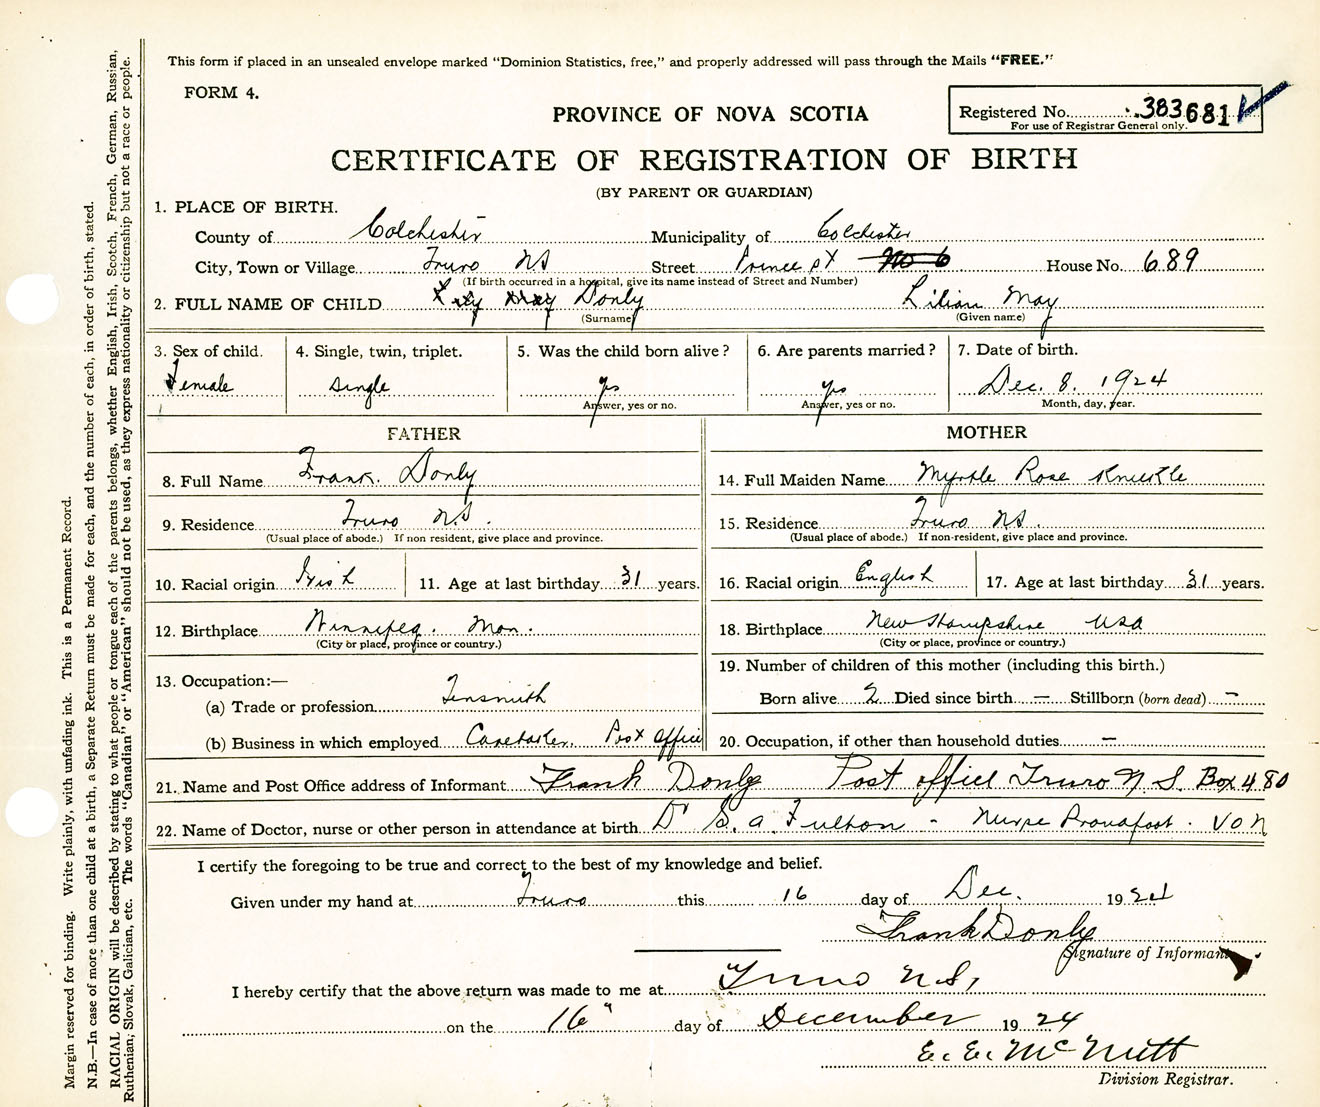 This form if placed in an unsealed envelope marked "Dominion Statistics, free," and properly addressed will pass through the Mails "FREE."
FORM 4.
PROVINCE OF NOVA SCOTIA
Registered No. 383681
For use of Registrar General only.
CERTIFICATE OF REGISTRATION OF BIRTH
(BY PARENT OR GUARDIAN)
1. PLACE OF BIRTH.
County of Colchester Municipality of Colchester
City, Town or Village Truro NS Street Prince St No 6 House No. 689
(If birth occurred in a hospital, give its name instead of Street and Number)
2. FULL NAME OF CHILD May Donly Lilian May
(Surname) (Given name)
3. Sex of child. 4. Single, twin, triplet. 5. Was the child born alive? 6. Are parents married? 7. Date of birth.
Female single yes yes Dec. 8. 1924
Answer, yes or no. Answer, yes or no. Month, day, year.
FATHER MOTHER
8. Full Name Frank Donly 14. Full Maiden Name Myrtle Rose Knuckle
9. Residence Truro N.S. 15. Residence Truro NS.
(Usual place of abode.) If non resident, give place and province. (Usual place of abode.) If non-resident, give place and province.
10. Racial origin Irish 11. Age at last birthday 31 years. 16. Racial origin English 17. Age at last birthday 31 years.
12. Birthplace Winnipeg. Man. 18. Birthplace New Hampshire USA
(City or place, province or country.) (City or place, province or country.)
19. Number of children of this mother (including this birth.)
13. Occupation:—
Born alive 2 Died since birth — Stillborn (born dead) —
(a) Trade or profession Tinsmith
(b) Business in which employed Caretaker. Post Office 20. Occupation, if other than household duties —
21. Name and Post Office address of Informant Frank Donly Post office Truro N.S. Box 480
22. Name of Doctor, nurse or other person in attendance at birth Dr S. A. Fulton - Nurse Proudfoot. VON
I certify the foregoing to be true and correct to the best of my knowledge and belief.
Given under my hand at Truro this 16 day of Dec. 1924
Frank Donly
Signature of Informant
I hereby certify that the above return was made to me at Truro N.S,
on the 16" day of December 1924
E. E. McNutt
Division Registrar.
Margin reserved for binding. Write plainly, with unfading ink. This is a Permanent Record.
N.B.—In case of more than one child at a birth, a Separate Return must be made for each, and the number of each, in order of birth, stated.
RACIAL ORIGIN will be described by stating to what people or tongue each of the parents belongs, whether English, Irish, Scotch, French, German, Russian,
Ruthenian, Slovak, Galician, etc. The words "Canadian" or "American" should not be used, as they express nationality or citizenship but not a race or people.